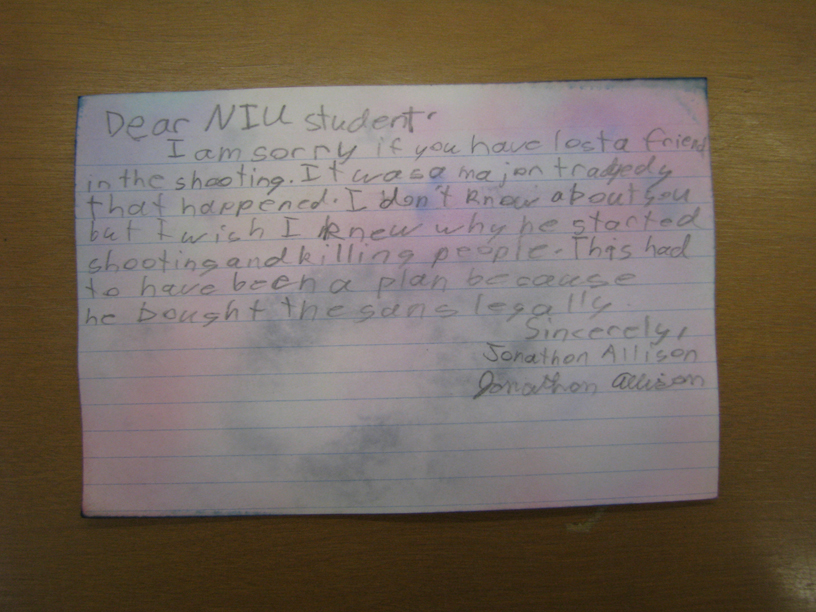 Dear NIU student,
I am sorry if you have lost a friend
in the shooting. It was a major tradgedy
that happened. I don't know about you
but I wish I knew why he started
shooting and killing people. This had
to have been a plan because
he bought the guns legally.
Sincerely,
Jonathon Allison
Jonathon Allison